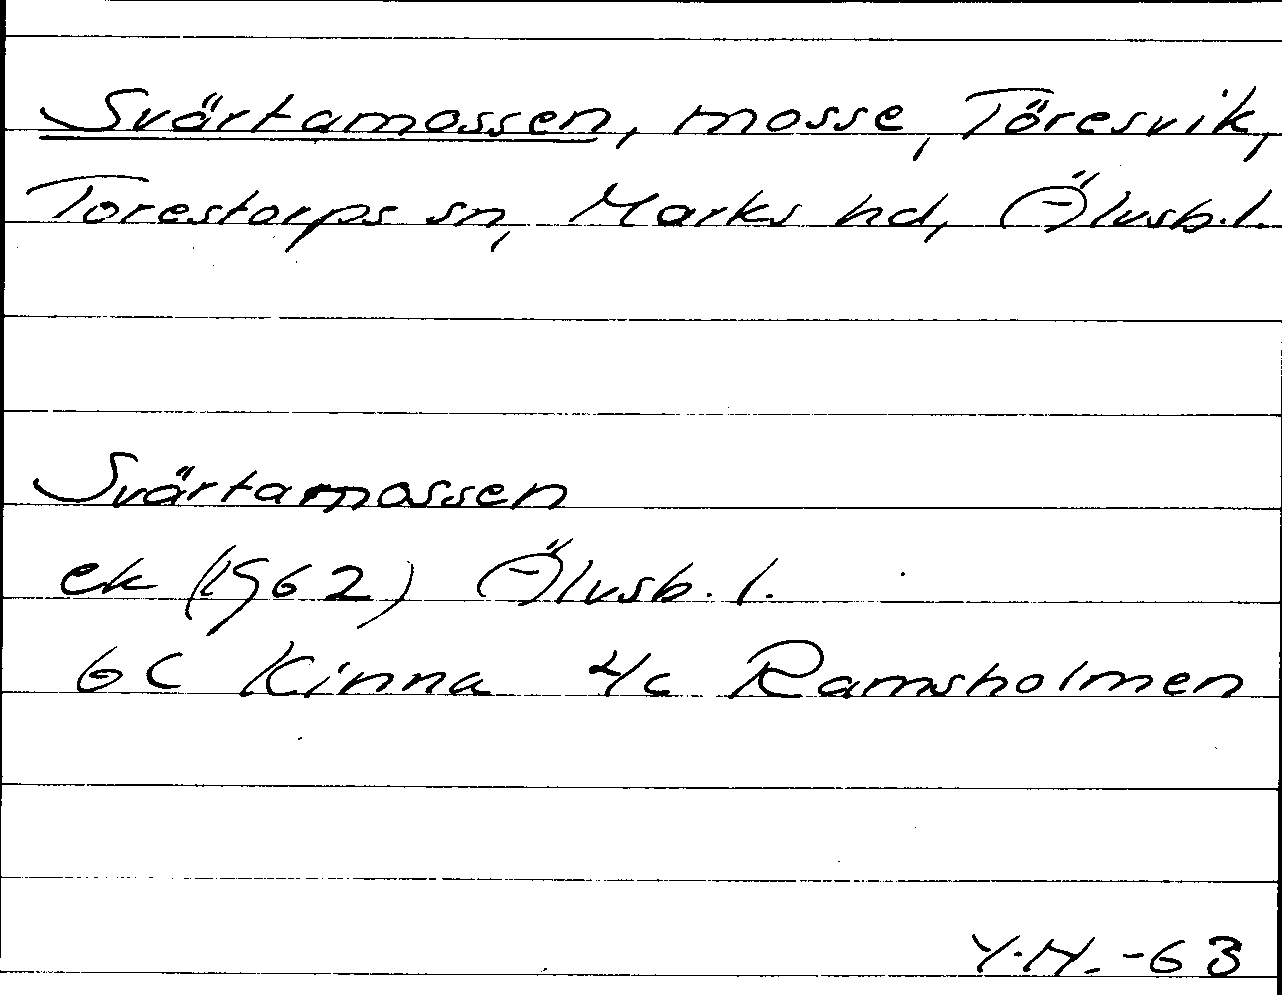 Svärtamossen, mosse, Töresvik,
Torestorps sn, Marks hd, Älvsb.l.
Svärtamossen
ek (1962) Älvsb.l.
6C Kinna 4c Ramsholmen
Y.H. -63